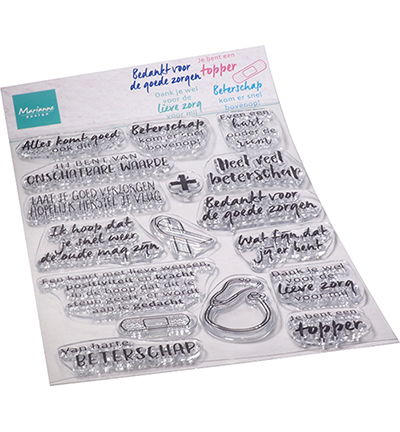 Marianne
DESIGN
Bedankt voor
de goede zorgen
Je bent een
topper
Dank je wel
voor de
lieve zorg
voor mij
Beterschap
kom er snel
bovenop!
Alles komt goed
ook dit
Beterschap
kom er snel
bovenop!
Even een
hart
onder de
riem
JIJ BENT VAN
ONSCHATBARE WAARDE
Heel veel
beterschap
LAAT JE GOED VERZORGEN
HOPELIJK HERSTEL JE VLUG
Bedankt voor
de goede zorgen
Ik hoop dat
je snel weer
de oude mag zijn
Wat fijn dat
jij er bent
lieve wensen
positiviteit
kracht
Dank je wel
voor de
lieve zorg
voor mij
Je bent een
topper
van harte
BETERSCHAP